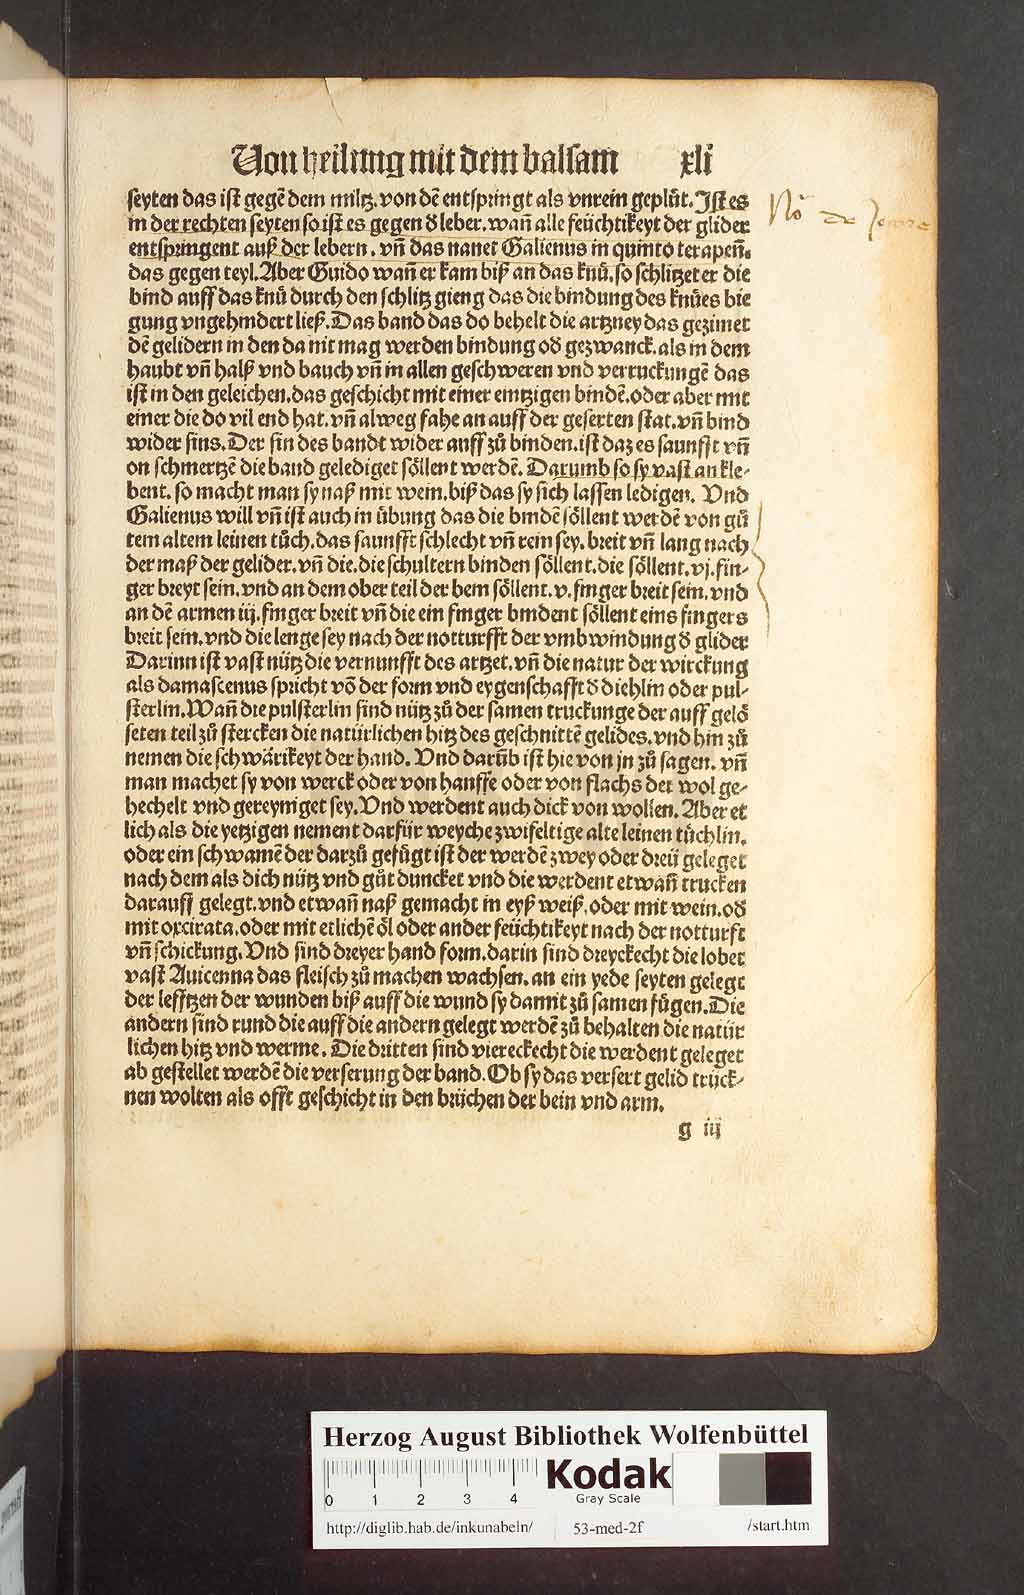 Von heilung mit dem balsam xli
seyten das ist gegē dem miltz. von dē entspringt als vnrein geplůt. Ist es
in der rechten seyten so ist es gegen d̕ leber. wañ alle feüchtikeyt der glider
entspringent auß der lebern. vñ das nanet Galienus in quinto terapeñ.
das gegen teyl. Aber Guido wañ er kam biß an das knů. so schlitzet er die
bind auff das knů durch den schlitz gieng das die bindung des knůes bie
gung vngehindert ließ. Das band das do behelt die artzney das gezimet
dē gelidern in den da nit mag werden bindung od̕ gezwanck. als in dem
haubt vñ halß vnd bauch vñ in allen geschweren vnd verruckungē das
ist in den geleichen. das geschicht mit einer eintzigen bindē. oder aber mit
einer die do vil end hat. vñ alweg fahe an auff der geserten stat. vñ bind
wider sins. Der sin des bandt wider auff zů binden. ist daz es saunfft vñ
on schmertzē die band gelediget söllent werdē. Darumb so sy vast an kle-
bent. so macht man sy naß mit wein. biß das sy sich lassen ledigen. Vnd
Galienus will vñ ist auch in übung das die bindē söllent werdē von gů
tem altem leinen tůch. das saunfft schlecht vñ rein sey. breit vñ lang nach
der maß der gelider. vñ die. die schultern binden söllent. die söllent. vj. fin-
ger breyt sein. vnd an dem ober teil der bein söllent. v. finger breit sein. vnd
an dē armen iij. finger breit vñ die ein finger bindent söllent eins fingers
breit sein. vnd die lenge sey nach der notturfft der vmbwindung d̕ glider
Darinn ist vast nütz die vernunfft des artzet. vñ die natur der wirckung
als damascenus spricht vō der form vnd eygenschafft d̕ diehlin oder pul-
sterlin. Wañ die pulsterlin sind nütz zů der samen truckunge der auff gelö
seten teil zů stercken die natürlichen hitz des geschnittē gelides. vnd hin zů
nemen die schwärikeyt der hand. Vnd darūb ist hie von jn zů sagen. vñ
man machet sy von werck oder von hanffe oder von flachs der wol ge-
hechelt vnd gereyniget sey. Vnd werdent auch dick von wollen. Aber et
lich als die yetzigen nement darfür weyche zwifeltige alte leinen tůchlin.
oder ein schwamē der darzů gefügt ist der werdē zwey oder dreü geleget
nach dem als dich nütz vnd gůt duncket vnd die werdent etwañ trucken
darauff gelegt. vnd etwañ naß gemacht in eyß weiß. oder mit wein. od̕
mit oxcirata. oder mit etlichē öl oder ander feüchtikeyt nach der notturft
vñ schickung. Vnd sind dreyer hand form. darin sind dreyckecht die lobet
vast Auicenna das fleisch zů machen wachsen. an ein yede seyten gelegt
der lefftzen der wunden biß auff die wund sy damit zů samen fügen. Die
andern sind rund die auff die andern gelegt werdē zů behalten die natür
lichen hitz vnd werme. Die dritten sind viereckecht die werdent geleget
ab gestellet werdē die verserung der band. Ob sy das versert gelid trück-
nen wolten als offt geschicht in den brüchen der bein vnd arm.
g iij
Herzog August Bibliothek Wolfenbüttel
0 1 2 3 4
Kodak
Gray Scale
http://diglib.hab.de/inkunabeln/ 53-med-2f /start.htm